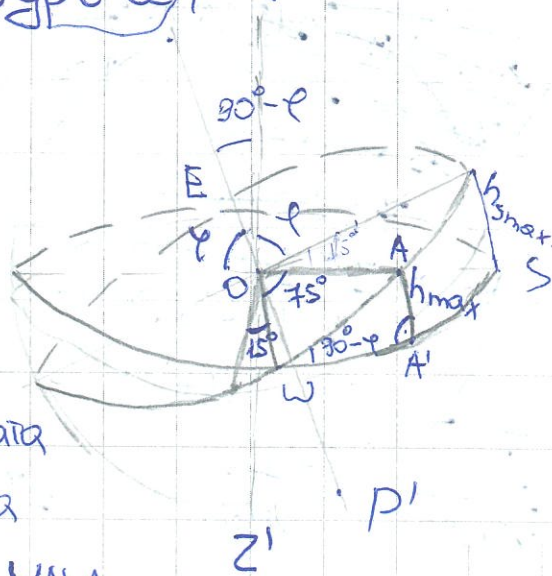 90°-φ
E
φ
φ
15°
A
h5max
S
O
75°
hmax
15°
90-φ
A'
W
ата
P'
Z'